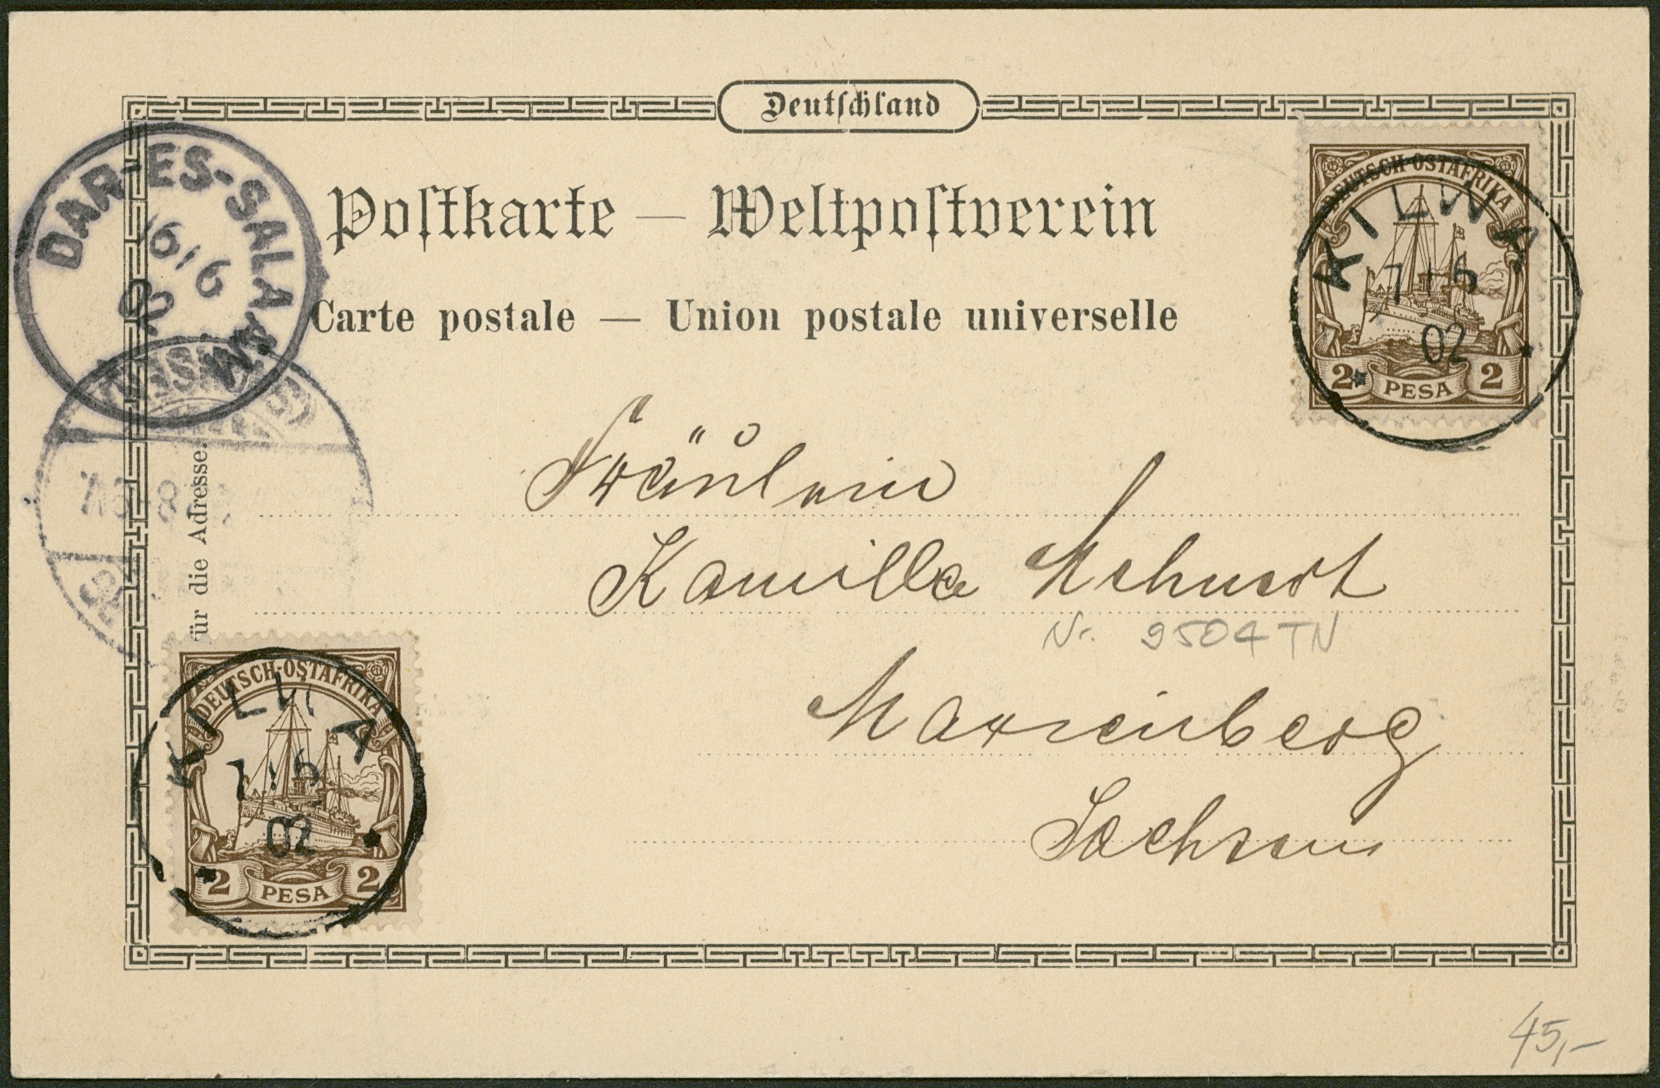 Deutschland
Postkarte — Weltpostverein
Carte postale — Union postale universelle
DAR-ES-SALAAM
16/6
02
DEUTSCH-OSTAFRIKA
2 PESA 2
KILWA
7/6
02
für die Adresse.
Fräulein
Kamilla
Nr. 9504 TN
Marienberg
Sachsen
DEUTSCH-OSTAFRIKA
2 PESA 2
KILWA
7/6
02
45,-